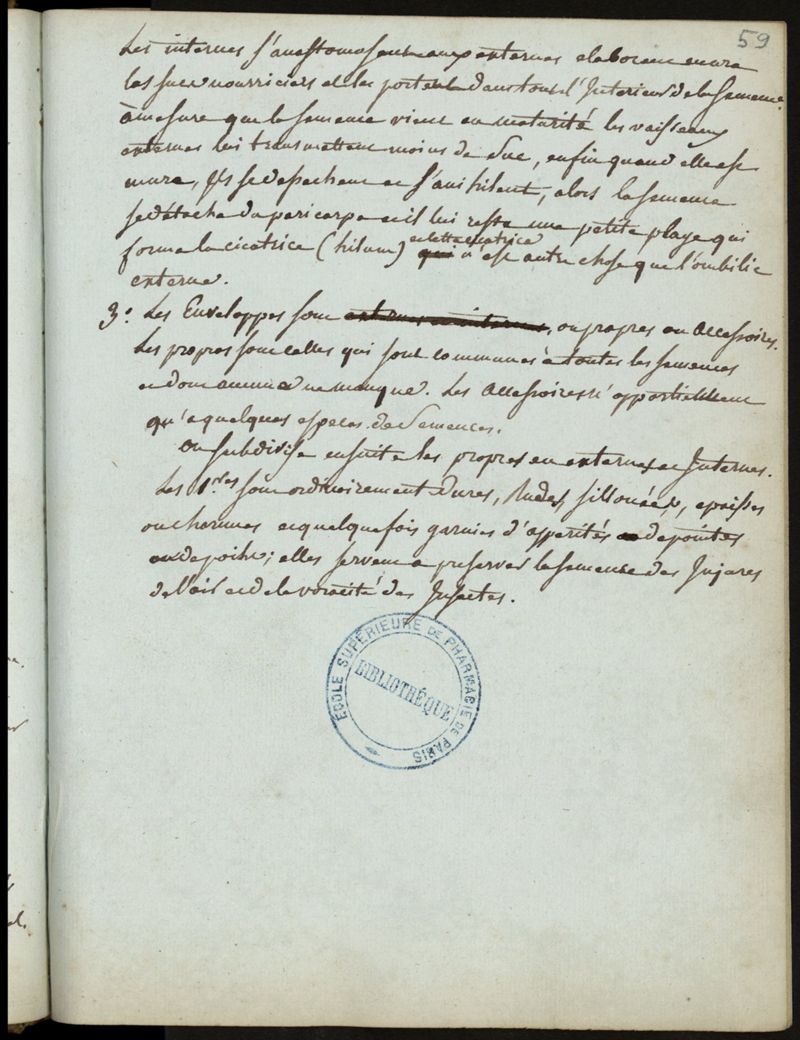 59
Les internes s'anastomosent aux externes elaborent encore
les sucs nourriciers et les portent dans tout l'Interieur de la semence.
à mesure que la semence vient en maturité les vaisseaux
externes lui transmettent moins de suc, enfin quand elle est
mure, ils se dessechent et s'anihilent, alors la semence
se détache du pericarpe et il lui reste une petite plage qui
forme la cicatrice (hilum) qui et cette cicatrice n'est autre chose que l'ombilic
externe.
3° Les Enveloppes sont externes ou internes, ou propres ou Accessoires.
Les propres sont celles qui sont communes à toutes les semences
et dont aucune ne manque. Les Accessoires n'appartiennent
qu'a quelques especes de Semences.
On subdivise ensuite les propres en externes et Internes.
Les 1res sont ordinairement dures, Rudes, sillonées, epaisses
ou charnues et quelquefois garnies d'asperités de pointes
ou de poils; elles servent a preserver la semence des Injures
de l'air et de la voracité des Insectes.
ECOLE SUPÉRIEURE DE PHARMACIE DE PARIS
BIBLIOTHÈQUE